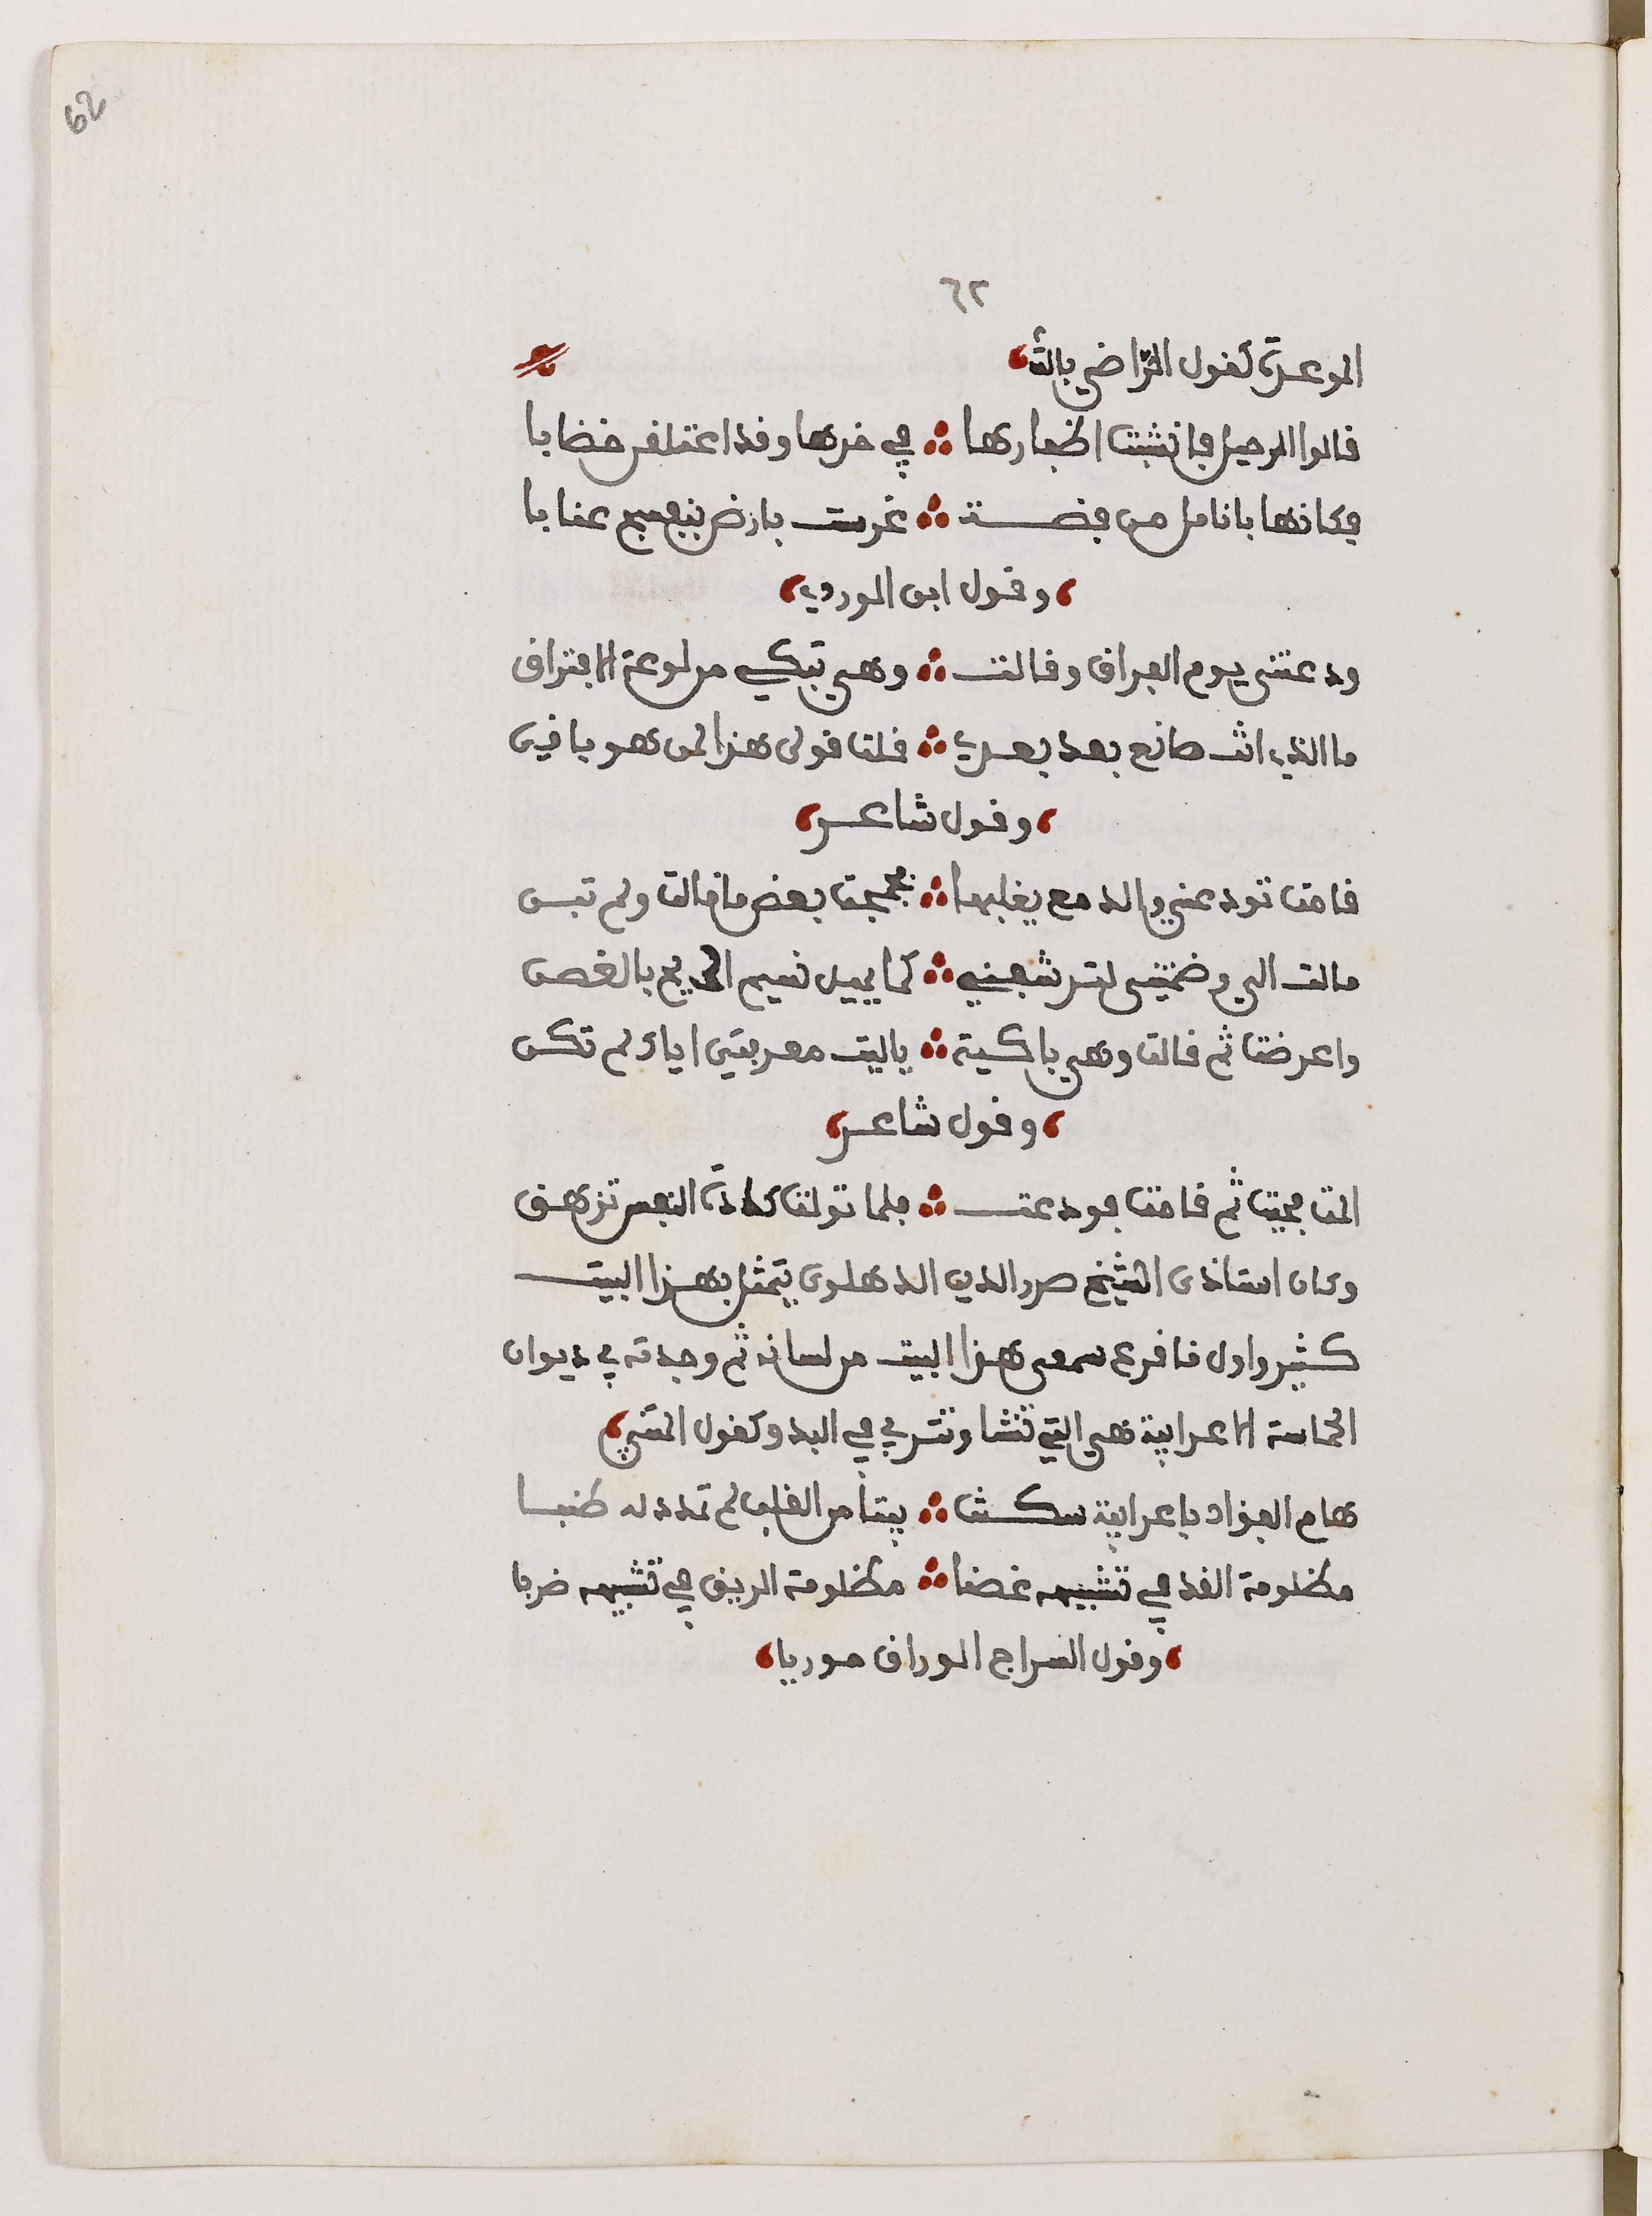 62
٦٢
المودعة كقول الراضي بالله
قالوا الرحيل فانشبت اظفارها ∴ في خدها وقد اعتلقن خضابا
فكانها بانامل من فضة ∴ غرست بارض بنفسج عنابا
وقول ابن الوردي
ودعتنى يوم الفراق وقالت ∴ وهي تبكي من لوعة الافتراق
ما الذي انت صانع بعد بعدي ∴ قلت قولى هذا لمن هو باقي
وقول شاعر
قامت تودعني والدمع يغلبها ∴ فجمجمت بعض ما قالت ولم تبن
مالت الي وضمتنى لترشفني ∴ كما يميل نسيم الريح بالغصن
واعرضت ثم قالت وهي باكية ∴ يا ليت معرفتي اياك لم تكن
وقول شاعر
المت فحيت ثم قامت فودعت ∴ فلما تولت كادت النفس تزهق
وكان استاذى الشيخ صدر الدين الدهلوى يتمثل بهذا البيت
كثيرا واول ما قرع سمعى هذا البيت من لسانه ثم وجدته في ديوان
الحماسة الاعرابية هي التي تنشا وتتربي في البدو كقول المتنبي
هام الفؤاد باعرابية سكنت ∴ بيتا من القلب لم تمدد له طنبا
مظلومة القد في تشبيهه غصنا ∴ مظلومة الريق في تشبيهه ضربا
وقول السراج الوراق موريا